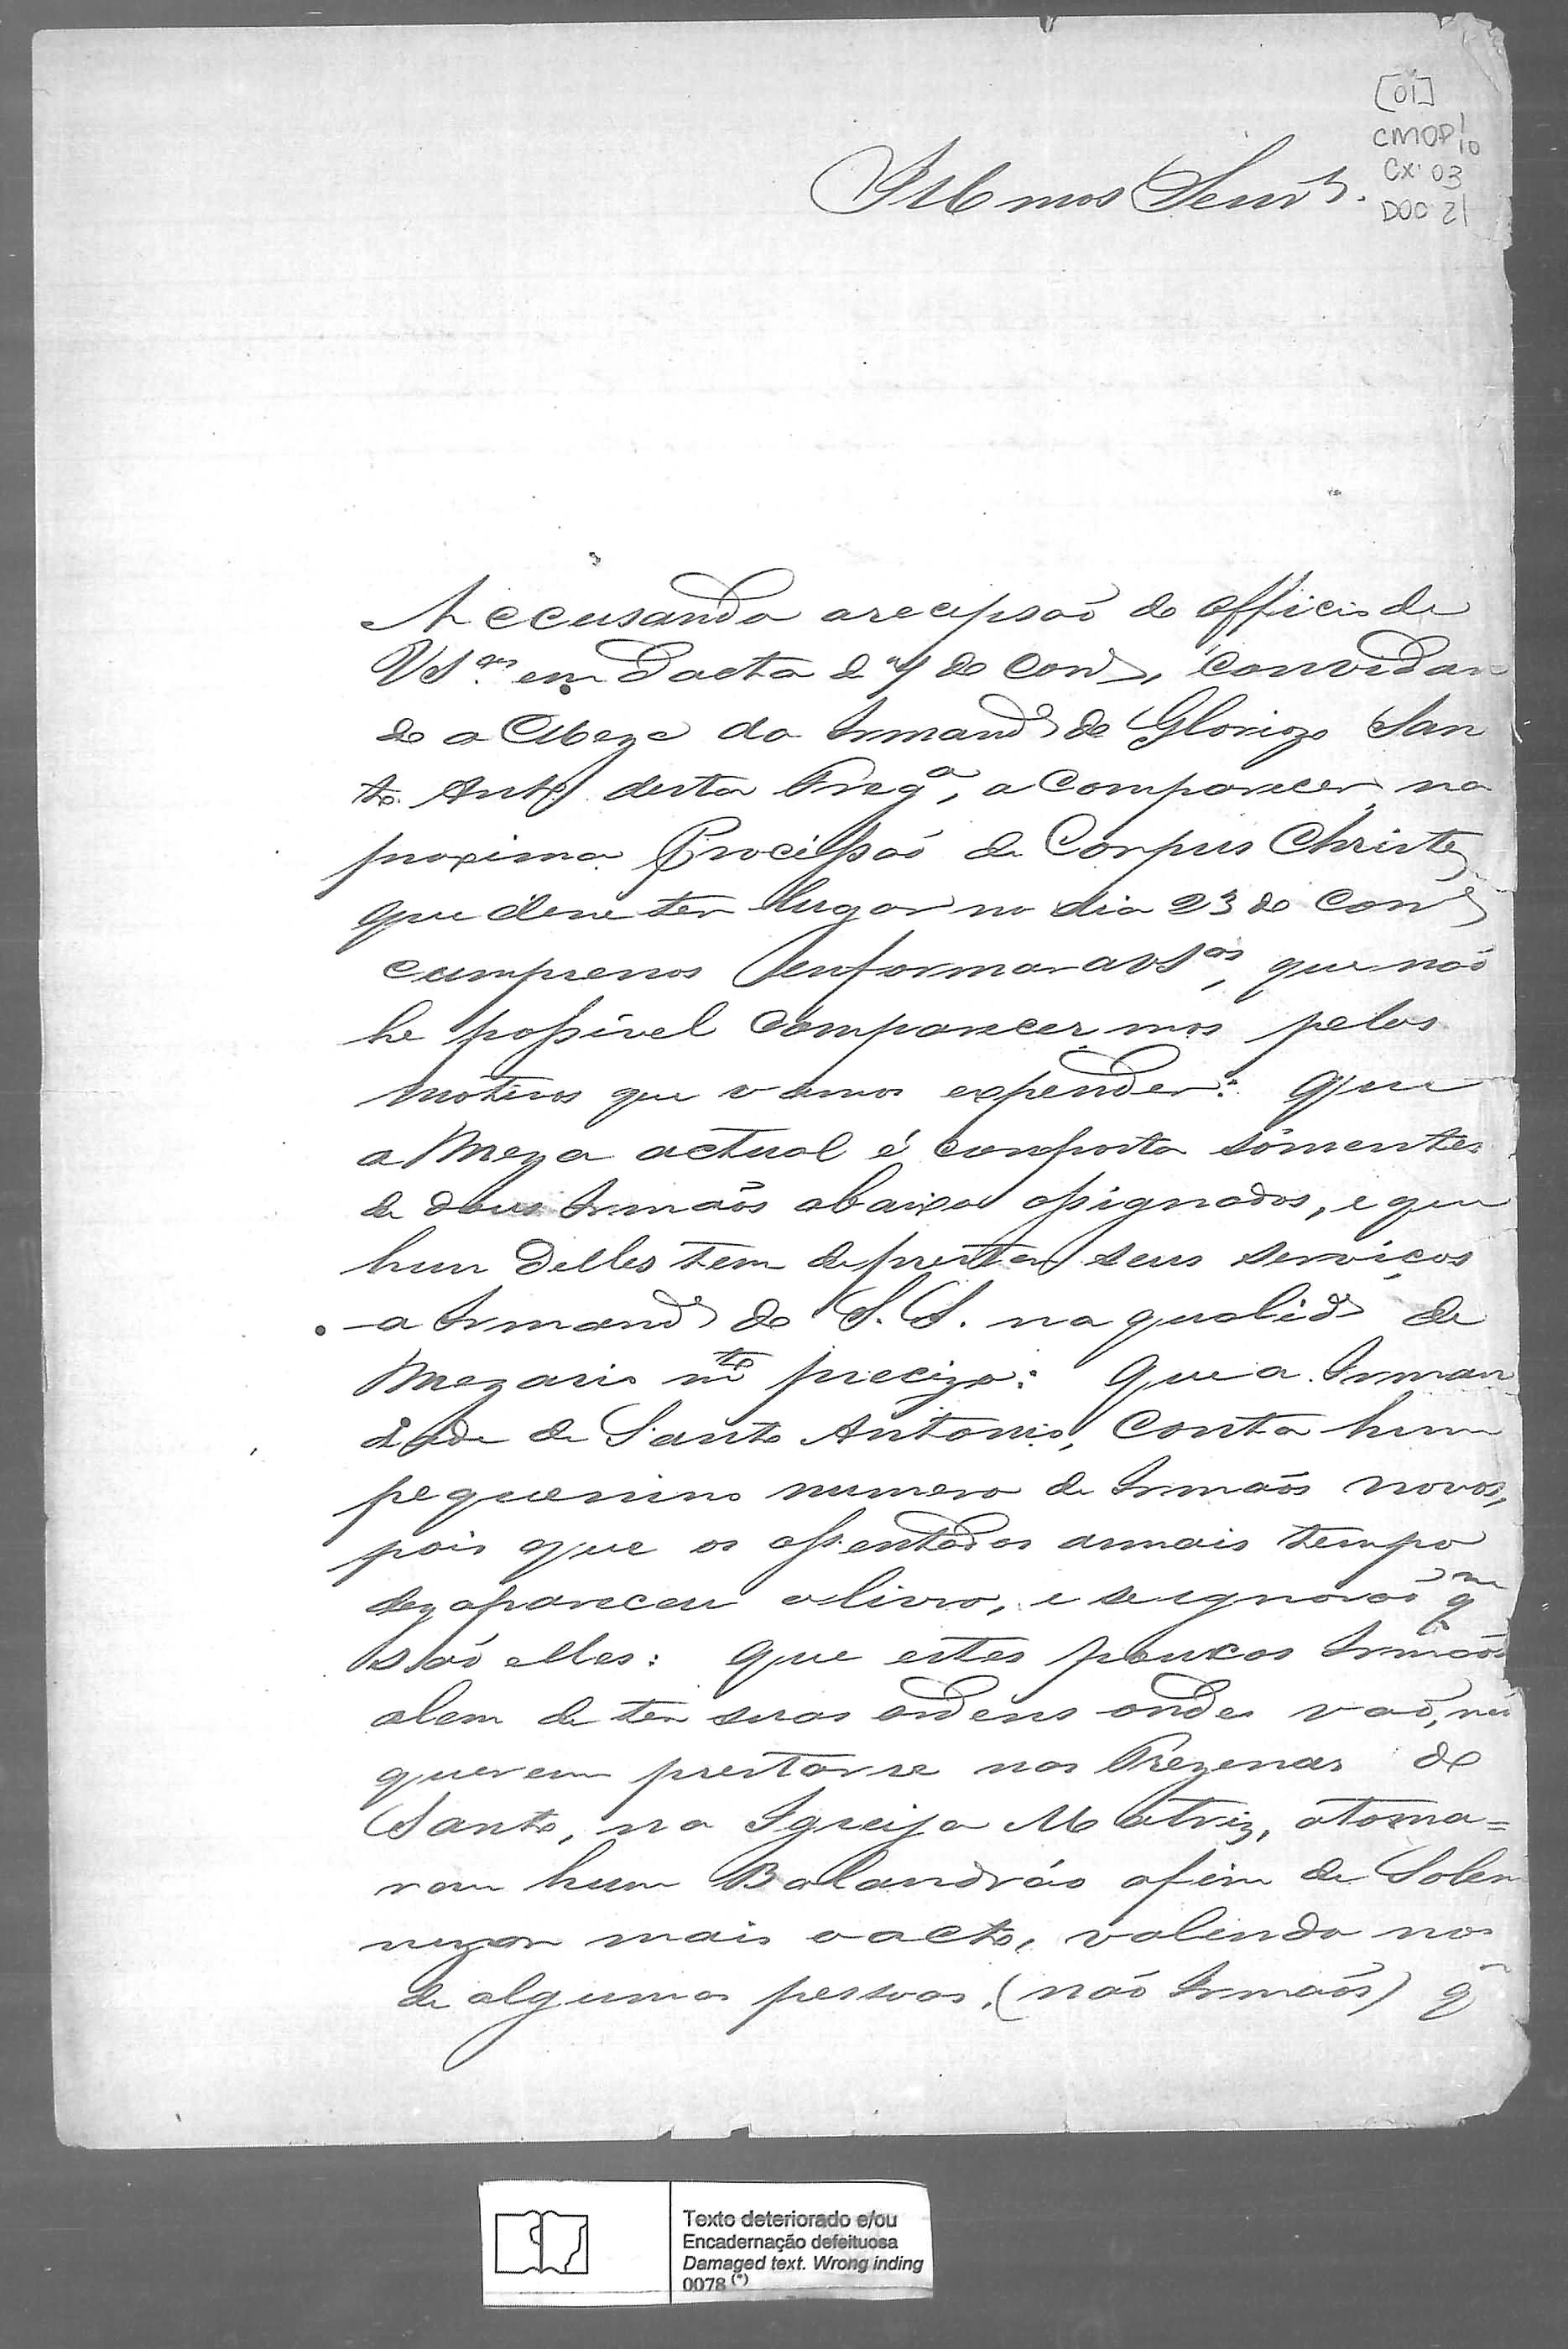 [01]
CMOP 1/10
Cx. 03
DOC 21
Illmos Senr.s
Accusando arecepsaõ do officio de
VS.as em dacta d' 4 do Corr.e, convidan
do a Meza da Irmand.e do Gloriozo San
to Ant.o desta Freg.a, a Comparecer na
proxima Procissaõ de Corpus Christe,
que deve ter lugar no dia 23 do Corr.e
cumprenos enformar aVS.as, que naõ
he possivel comparecermos pelos
motivos que vamos expender: Que
a Meza actual é composta sómente
de dous Irmaõs abaixo assignados, e que
hum delles tem de prestar seus serviços
a Irmand.e do S. S. na qualid.e de
Mezario m.to precizo: Que a Irman
dade de Santo Antonio, Conta hum
pequenino numero de Irmaõs novos,
pois que os assentados a mais tempo
dezapareceu o livro, e se ignoraõ q.m
saõ elles: Que estes poucos Irmaõs
alem de ter suas ordens onde vaõ, naõ
querem prestarse nas Trezenas do
Santo, na Igreija Matriz, atoma=
rem hum Balandráo afim de Solem
nezar mais o acto, valendo nos
de algumas pessoas, (naõ Irmaõs) q̃
Texto deteriorado e/ou
Encadernação defeituosa
Damaged text. Wrong inding
0078 (*)